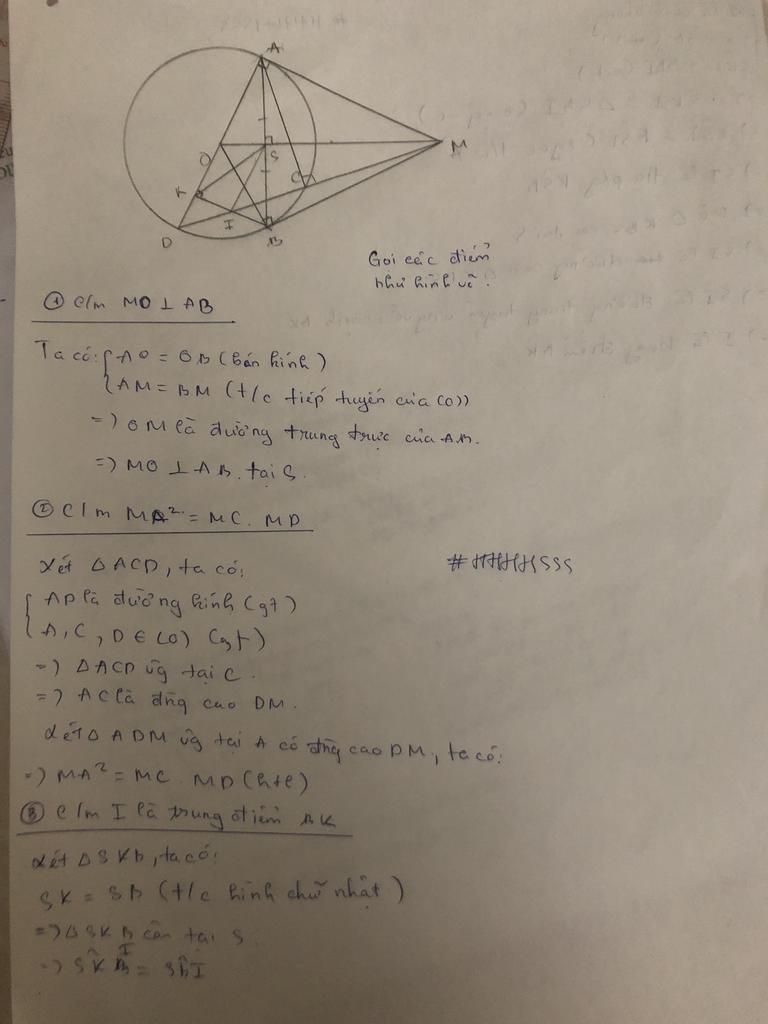 A
O
S
M
C
K
I
D
B
Gọi các điểm
như hình vẽ.
① C/m MO ⊥ AB
Ta có: { AO = OB (bán kính)
AM = BM (t/c tiếp tuyến của (O))
=) OM là đường trung trực của AB.
=) MO ⊥ AB tại S.
② C/m MA² = MC. MD
Xét △ACD, ta có:
#HHHHSSS
{ AD là đường kính (gt)
A, C, D ∈ (O) (gt)
=) △ACD vg tại C.
=) AC là đng cao DM.
Xét △ ADM vg tại A có đng cao DM, ta có:
=) MA² = MC. MD (htl)
③ C/m I là trung điểm BK
Xét △SKB, ta có:
SK = SB (t/c hình chữ nhật)
=) △SKB cân tại S
=) SK̂I = SB̂I